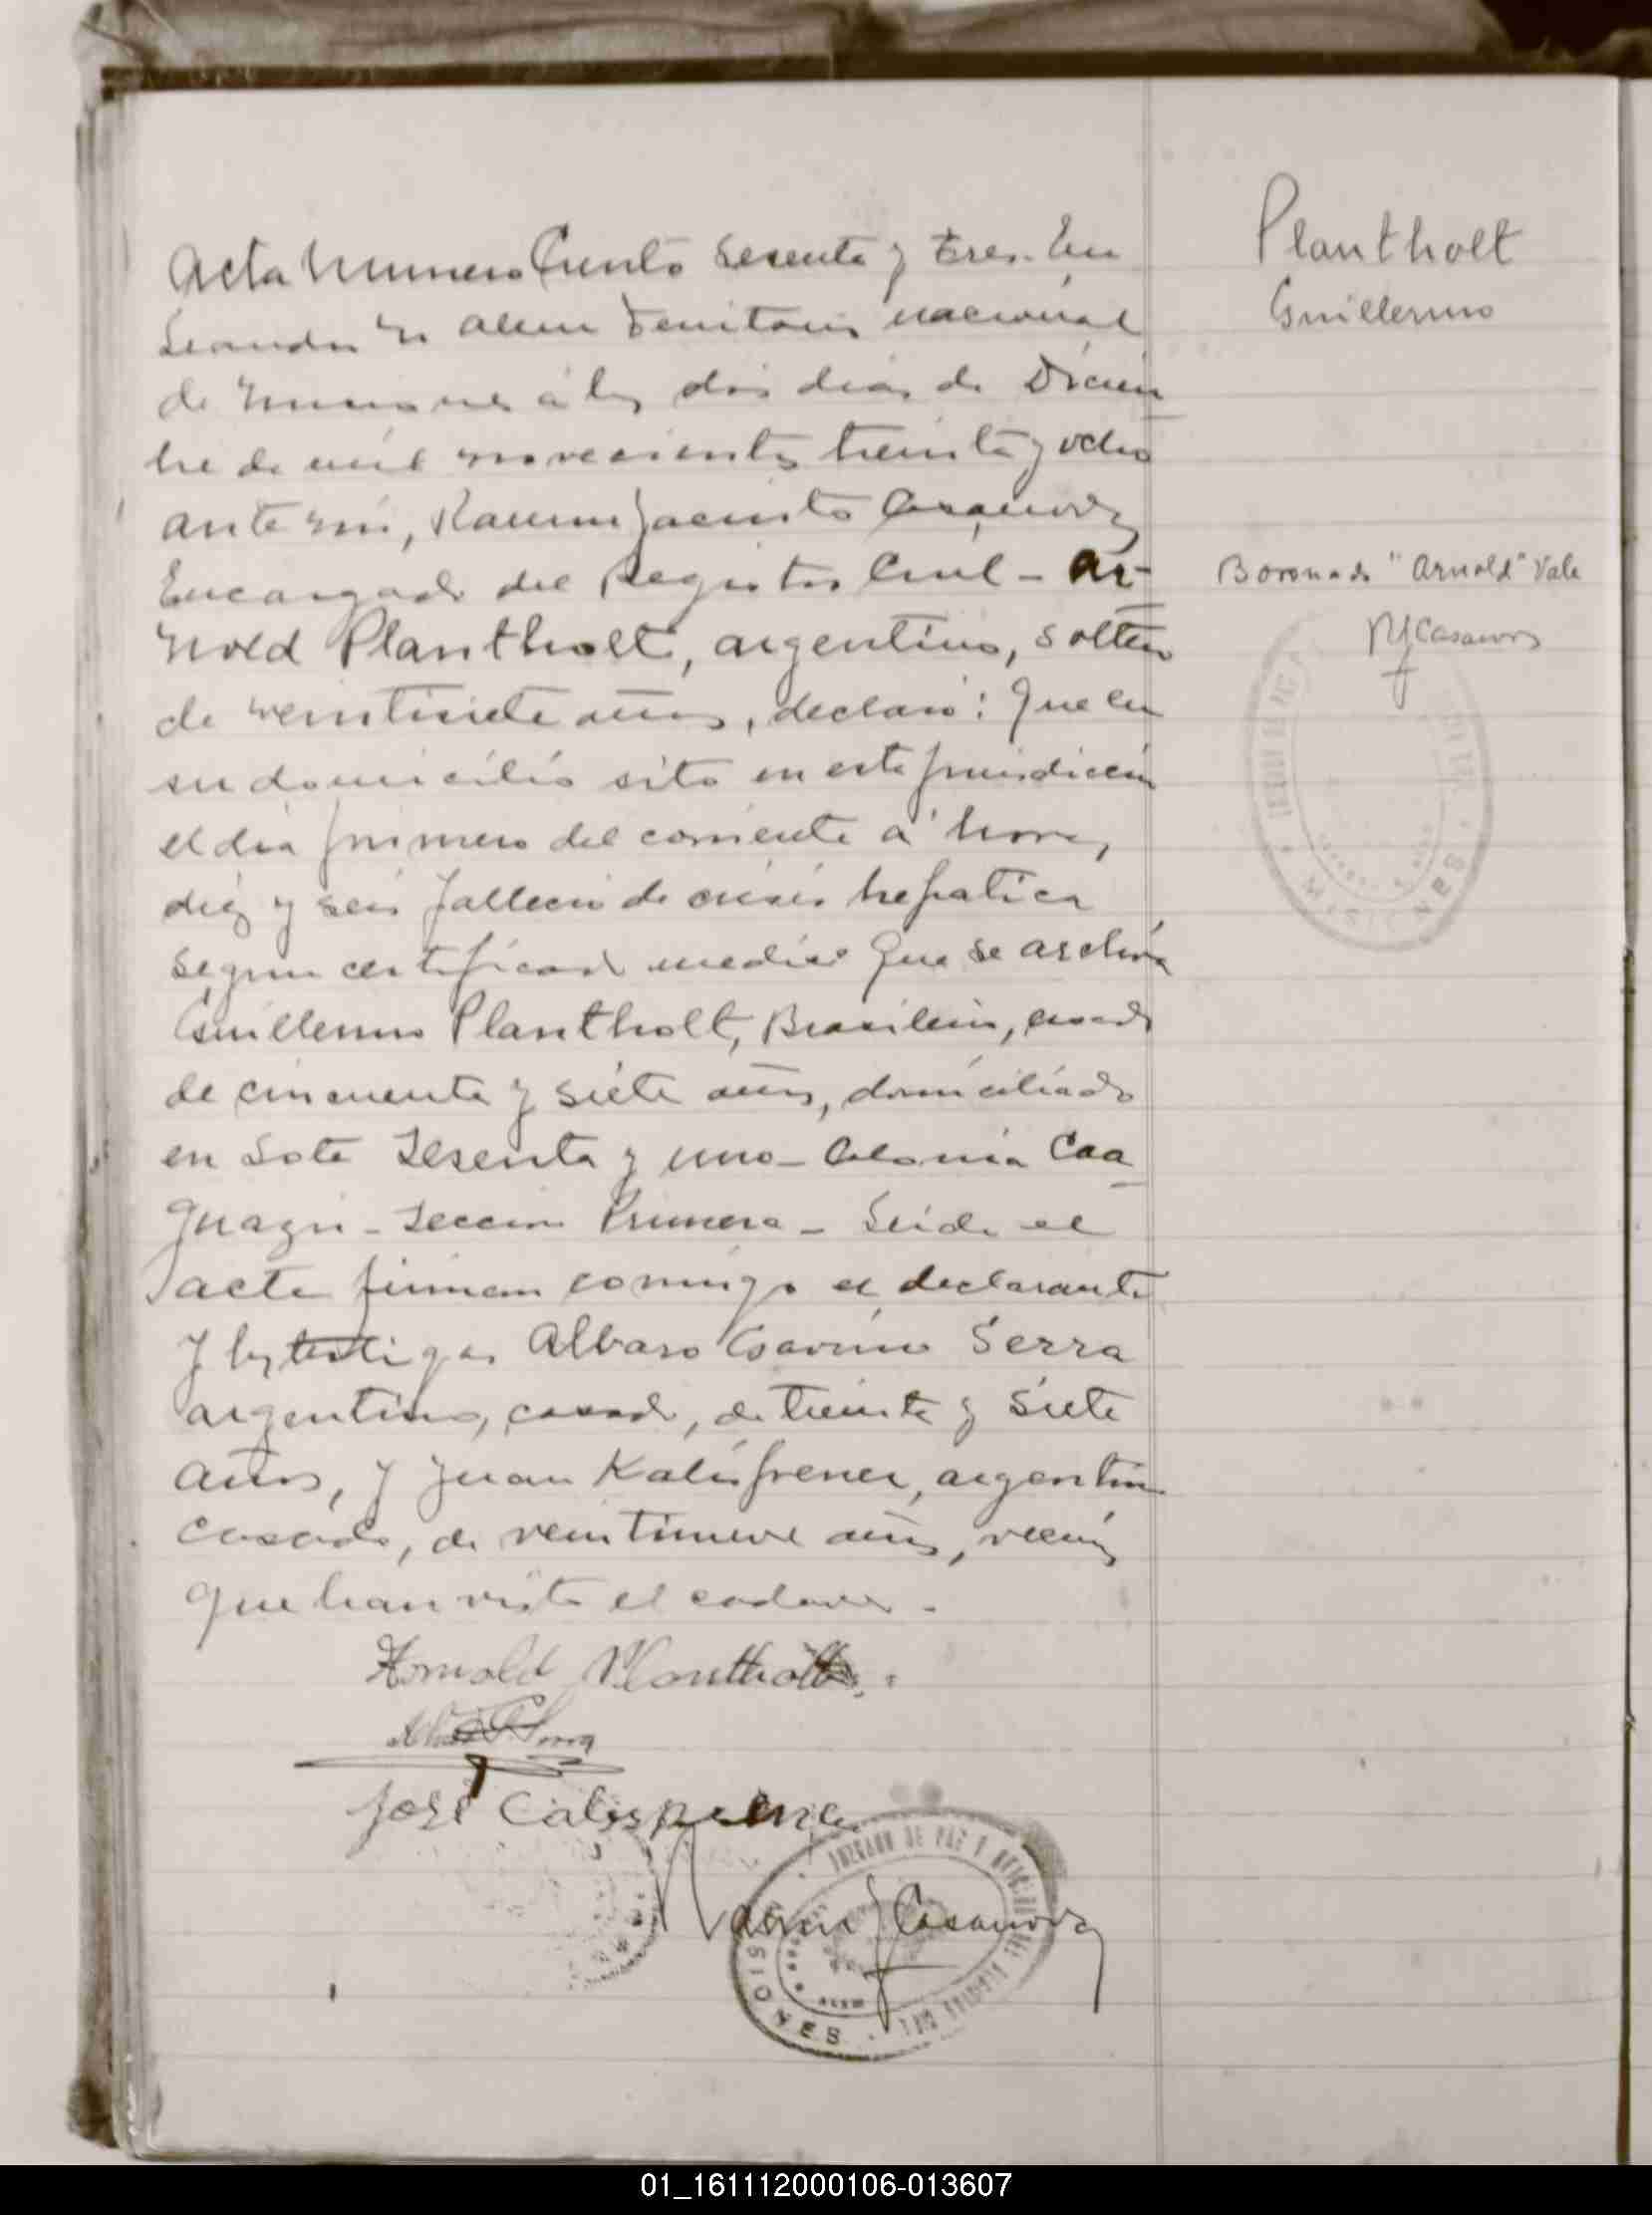 Acta Numero Ciento Sesenta y tres. En
Leandro N Alem Territorio nacional
de Misiones a los dos dias de Diciem
bre de mil novecientos treinta y ocho
ante mi, Ramon Jacinto Casanova
Encargado del Registro Civil - Ar-
nold Plantholt, argentino, soltero
de veintisiete años, declaró: Que en
su domicilio sito en esta jurisdiccion
el dia primero del corriente a horas,
diez y seis falleció de crisis hepatica
segun certificado medico que se archiva
Guillermo Plantholt, Brasilero, casado
de cincuenta y siete años, domiciliado
en Lote Sesenta y uno - Colonia Caa
Guazu - Seccion Primera - Leida el
acta firman conmigo el declarante
y los testigos Albaro Gavino Serra
argentino, casado, de treinta y siete
años, y Juan Kalisfrener, argentino
casado, de veintinueve años, vecinos
que han visto el cadaver.
Arnold Plantholt
Serra
José
Ramon J Casanova
JUZGADO DE PAZ Y
MISIONES
ALEM
Plantholt
Guillermo
Borronado "Arnold" Vale
RJCasanova
MISIONES
01_161112000106-013607